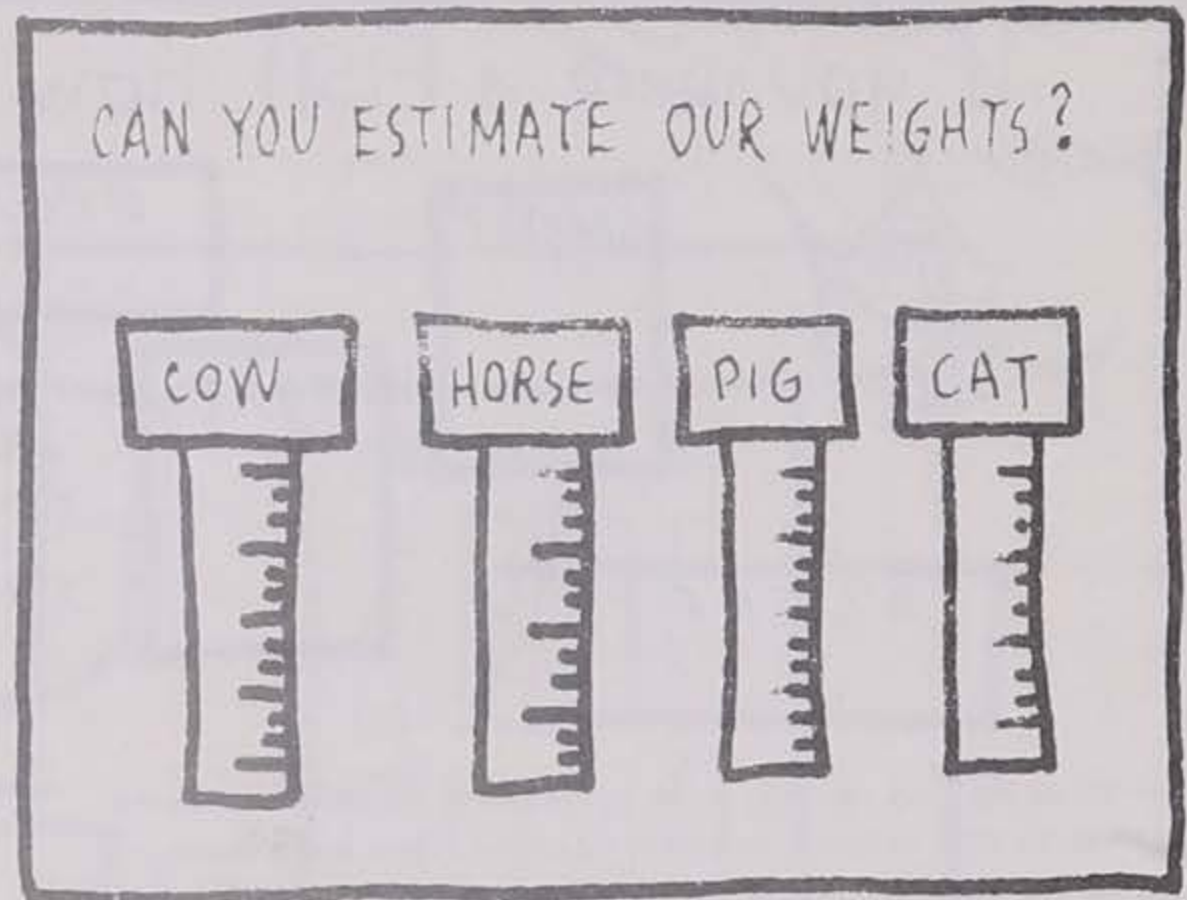 CAN YOU ESTIMATE OUR WEIGHTS?
COW HORSE PIG CAT